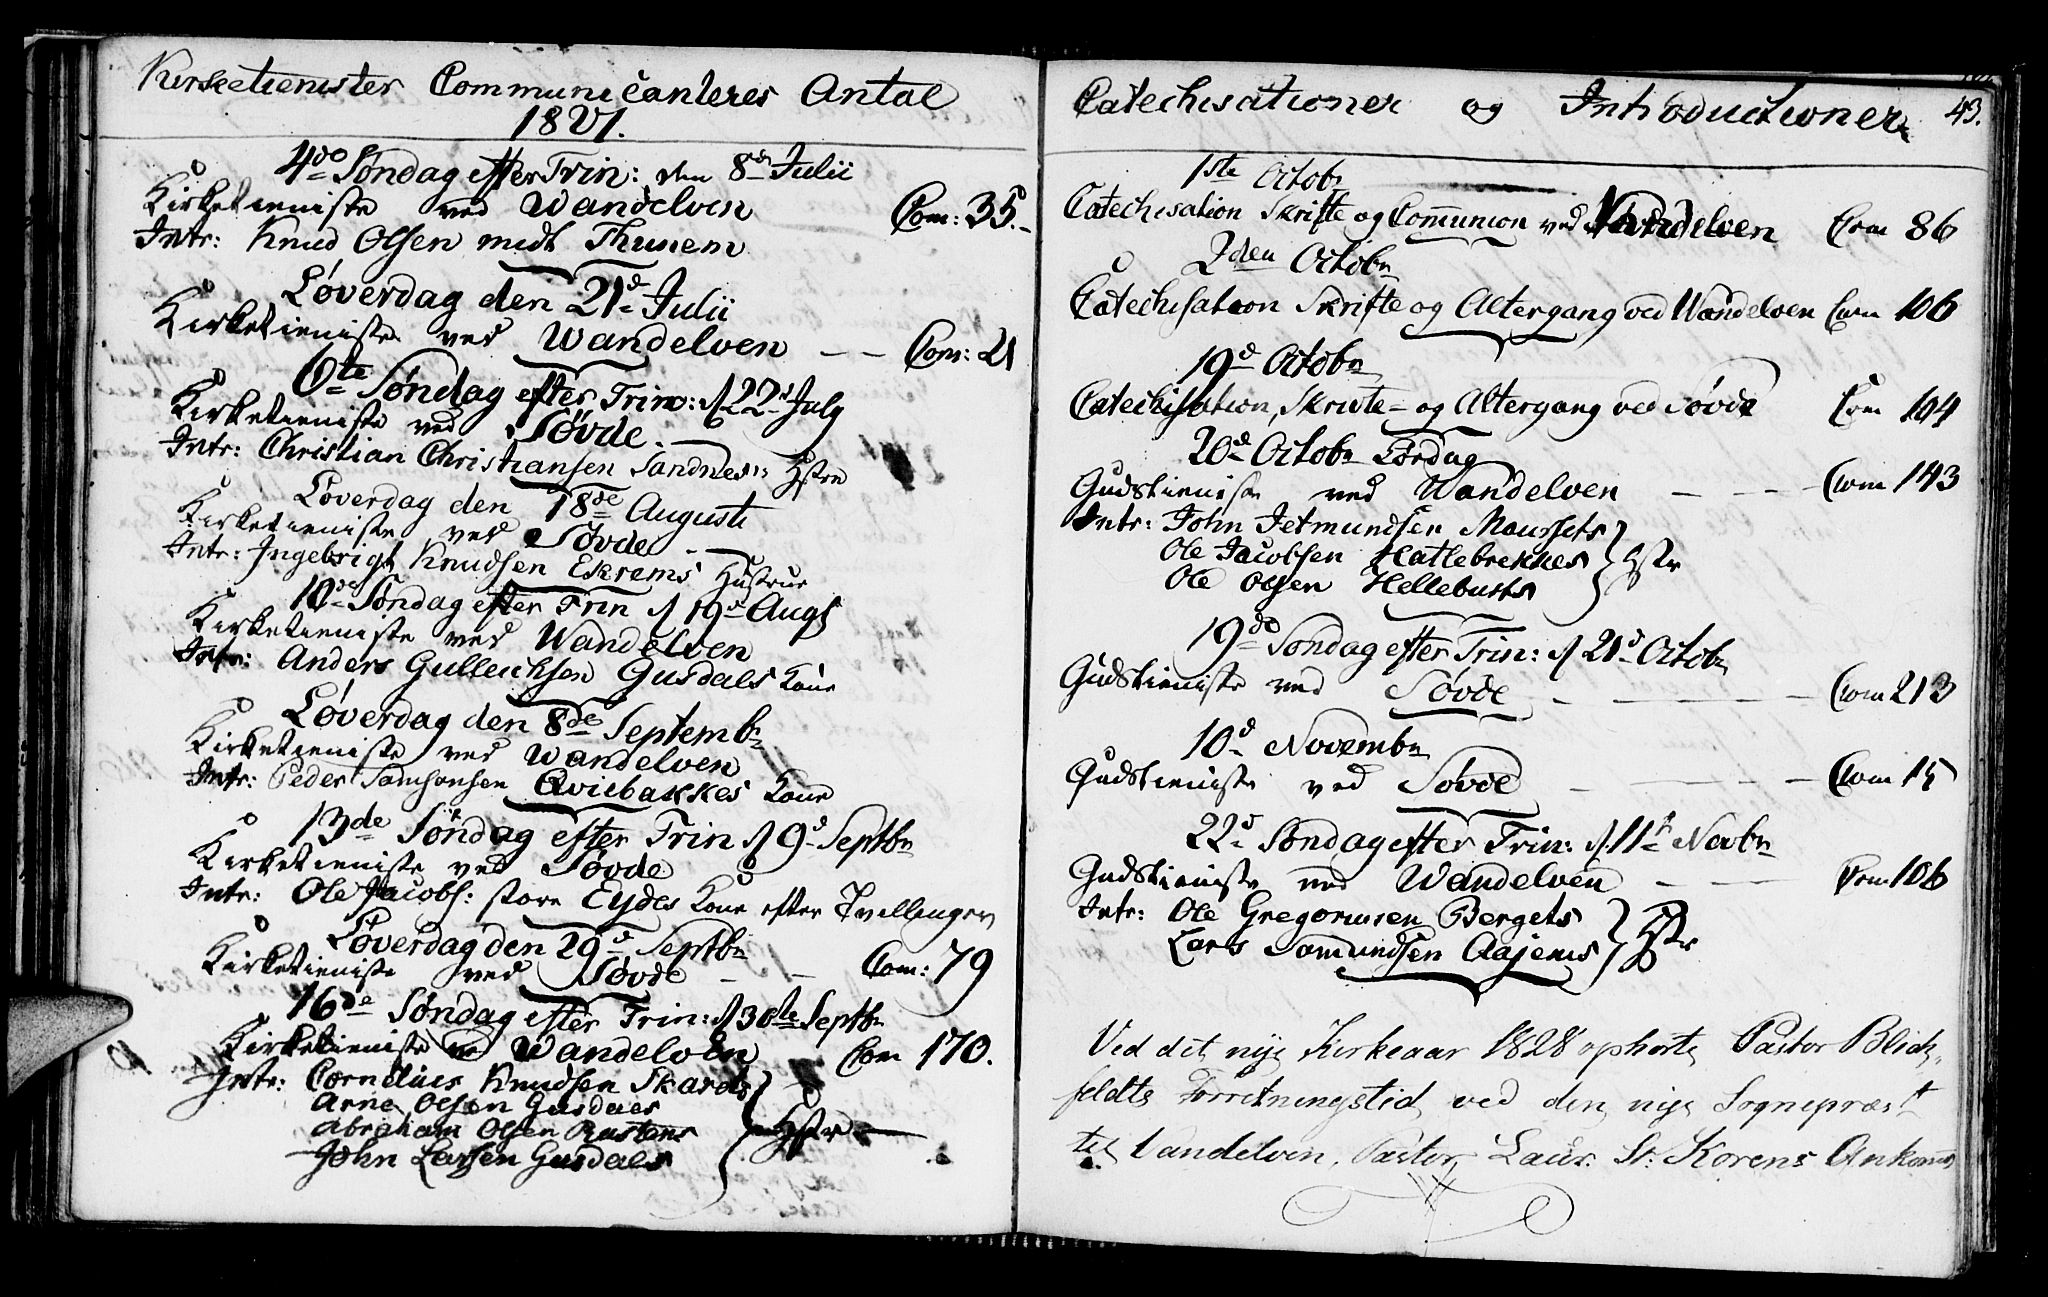 Kirketienister Communicanteres Antal
1821.
4do Søndag efter Trin: den 8de Julii
Kirketieniste ved Wandelven Com: 35.-
Intr: Knud Olsen midt Thunem
Løverdag den 21d Julii
Kirketieniste ved Wandelven - - Com: 21
6te Søndag efter Trin: d 22d July
Kirketieniste ved Søvde.
Intr: Christian Christiansen Sandnes Hstr
Løverdag den 18de Augusti
Kirketieniste ved Søvde
Intr: Ingebrigt Knudsen Ekrems Hustrue
10de Søndag efter Trin d 19d Aug
Kirketieniste ved Wandelven
Intr: Anders Gulleichsen Gusdals Kone
Løverdag den 8de Septembr
Kirketieniste ved Wandelven
Intr: Peder Samsonsen Qviebakkes Kone
13de Søndag efter Trin d 9d Septbr
Kirketieniste ved Søvde
Intr: Ole Jacobs: store Eydes Kone efter Tvillinger
Løverdag den 29d Septbr
Kirketieniste ved Søvde - - Com: 79
16de Søndag efter Trin: d 30te Septbr
Kirketieniste ved Wandelven Com 170.
Intr: Cornelius Knudsen Skards
Arne Olsen Gusdals
Abraham Olsen Rustens Hstr
John Larsen Gusdals
Catechisationer og Introductioner 43.
1ste Octobr
Catechisation Skrifte og Communion ved Wandelven Com 86
2den Octobr
Catechisation Skrifte og Altergang ved Wandelven Com 106
19d Octobr
Catechisation, Skrivte- og Altergang ved Søvde Com 104
20d Octobr Lørdag
Gudstieniste ved Wandelven - - - - Com 143
Intr: John Jetmundsen Maurssets
Ole Jacobsen Hatlebrekkes Hstr
Ole Olsen Hellebusts
19do Søndag efter Trin: d 21d Octobr
Gudstieniste ved Søvde - - - Com 213
10d Novembr
Gudstieniste ved Søvde - - - Com 15
22d Søndag efter Trin: d. 11t Novbr
Gudstieniste ved Wandelven - - Com 106
Intr: Ole Gregoriusen Bergets
Lars Samundsen Aajems Hstr
Ved det nye Kirkeaar 1828 ophorte Pastor Blich-
feldts Forretningstid, ved den nye Sognepræst
til Vandelven, Pastor Laur. St: Korens Ankomst